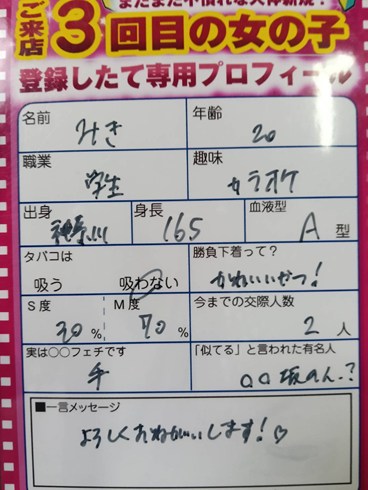 まだまだ不慣れな天神新规!
ご来店3回目の女の子
登録したて専用プロフィール
名前 みき 年齢 20
職業 学生 趣味 カラオケ
出身 神奈川 身長 165 血液型 A型
タバコは 吸う 吸わない 勝負下着って? かわいいやつ!
S度 30% M度 70% 今までの交際人数 2人
実は○○フェチです 手 「似てる」と言われた有名人 ○○坂のん.?
■一言メッセージ
よろしくおねがいします!♡